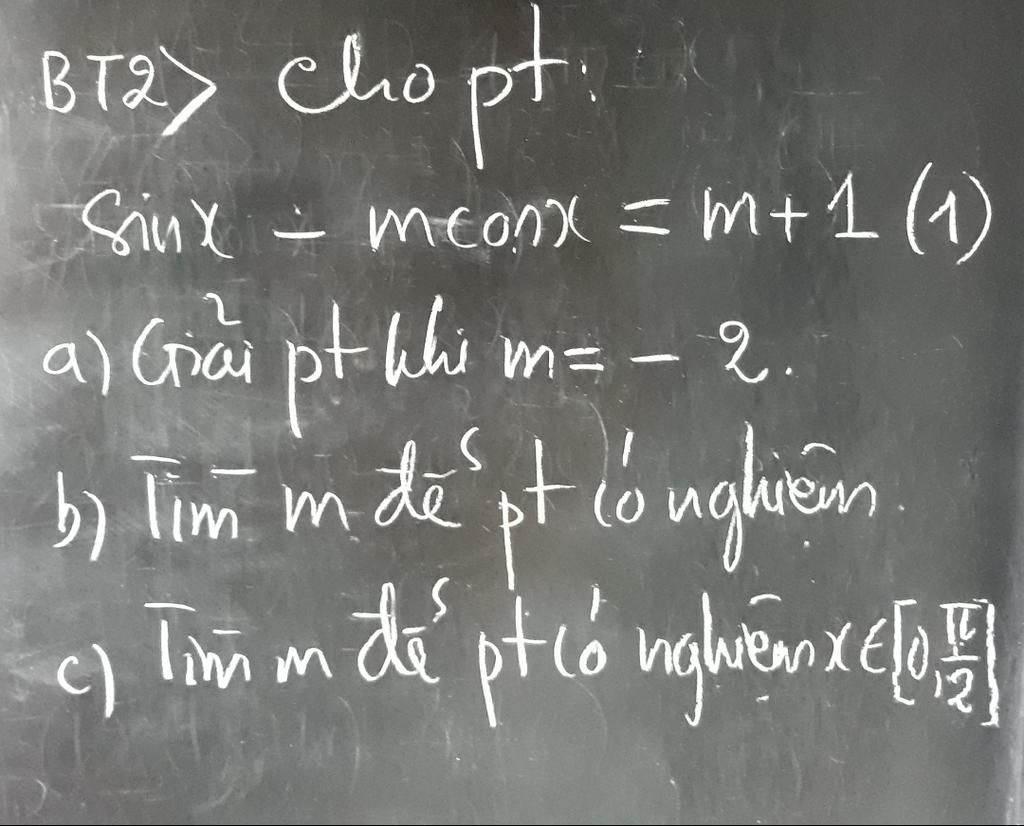 BT2> Cho pt:
sinx - mcosx = m+1 (1)
a) Giải pt khi m = - 2.
b) Tìm m để pt có nghiệm.
c) Tìm m để pt có nghiệm x ∈ [0, π/2]